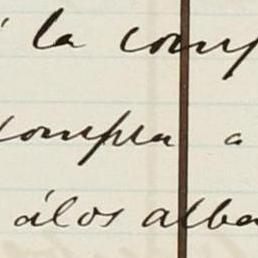 la comp
compra a
álos alba